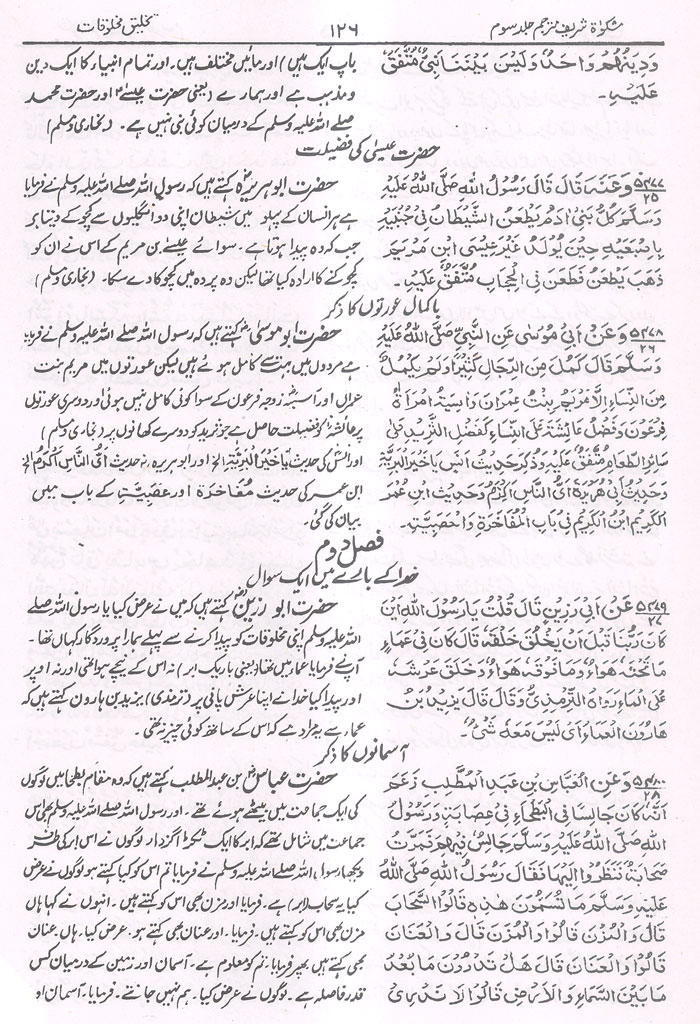 مشکوٰۃ شریف مترجم جلد سوم
۱۲۶
تخلیق مخلوقات
وَدِينُهُمْ وَاحِدٌ وَلَيْسَ بَيْنَنَا نَبِيٌّ مُتَّفَقٌ
عَلَيْهِ۔
باپ ایک ہیں) اور مائیں مختلف ہیں۔ اور تمام انبیاء کا ایک دین
و مذہب ہے اور ہمارے (یعنی حضرت عیسےٰ اور حضرت محمد
صلے اللہ علیہ وسلم کے درمیان کوئی نبی نہیں ہے۔ (بخاری ومسلم)
حضرت عیسیٰ کی فضیلت
۵۴۷۷
۲۵
وَعَنْهُ قَالَ قَالَ رَسُولُ اللهِ صَلَّى اللهُ عَلَيْهِ
وَسَلَّمَ كُلُّ بَنِي اٰدَمَ يَطْعَنُ الشَّيْطَانُ فِي جَنْبَيْهِ
بِاِصْبَعَيْهِ حِينَ يُولَدُ غَيْرَ عِيسَى ابْنِ مَرْيَمَ
ذَهَبَ يَطْعَنُ فَطَعَنَ فِي الْحِجَابِ مُتَّفَقٌ عَلَيْهِ۔
حضرت ابو ہریرہؓ کہتے ہیں کہ رسول اللہ صلے اللہ علیہ وسلم نے فرمایا
ہے ہر انسان کے پہلو میں شیطان اپنی دو انگلیوں سے کچوکے دیتا ہے
جب کہ وہ پیدا ہوتا ہے۔ سوائے عیسےٰ بن مریم کے اس نے ان کو
کچوکنے کا ارادہ کیا تھا لیکن وہ پردہ میں کچوکا دے سکا۔ (بخاری ومسلم)
باکمال عورتوں کا ذکر
۵۴۷۸
۲۶
وَعَنْ اَبِي مُوْسٰى عَنِ النَّبِيِّ صَلَّى اللهُ عَلَيْهِ
وَسَلَّمَ قَالَ كَمُلَ مِنَ الرِّجَالِ كَثِيْرٌ وَلَمْ يَكْمُلْ
مِنَ النِّسَاءِ اِلَّا مَرْيَمُ بِنْتُ عِمْرَانَ وَاٰسِيَةُ امْرَأَةُ
فِرْعَوْنَ وَفَضْلُ عَائِشَةَ عَلَى النِّسَاءِ كَفَضْلِ الثَّرِيْدِ عَلٰى
سَائِرِ الطَّعَامِ مُتَّفَقٌ عَلَيْهِ وَذُكِرَ حَدِيْثُ اَنَسٍ يَا خَيْرَ الْبَرِيَّةِ
وَحَدِيْثُ اَبِي هُرَيْرَةَ اَيُّ النَّاسِ اَكْرَمُ وَحَدِيْثُ ابْنِ عُمَرَ
الْكَرِيْمِ ابْنِ الْكَرِيْمِ فِي بَابِ الْمُفَاخَرَةِ وَالْعَصَبِيَّةِ۔
حضرت ابو موسیٰؓ کہتے ہیں کہ رسول اللہ صلے اللہ علیہ وسلم نے فرمایا
ہے مردوں میں بہت سے کامل ہوئے ہیں لیکن عورتوں میں مریم بنت
عمران اور آسیہ زوجہ فرعون کے سوا کوئی کامل نہیں ہوئی اور دوسری عورتوں
پر عائشہؓ کو فضیلت حاصل ہے جو ثرید کو دوسرے کھانوں پر (بخاری ومسلم)
اور انسؓ کی حدیث یا خیر البریۃ الخ اور ابوہریرہؓ حدیث ای الناس اکرم الخ
ابن عمر کی حدیث مفاخرۃ اور عصبیۃ کے باب میں
بیان کی گئی۔
فصل دوم
خدا کے بارے میں ایک سوال
۵۴۷۹
۲۷
عَنْ اَبِي رَزِيْنٍ قَالَ قُلْتُ يَا رَسُوْلَ اللهِ اَيْنَ
كَانَ رَبُّنَا قَبْلَ اَنْ يَخْلُقَ خَلْقَهٗ قَالَ كَانَ فِي عَمَاءٍ
مَا تَحْتَهٗ هَوَاءٌ وَمَا فَوْقَهٗ هَوَاءٌ وَخَلَقَ عَرْشَهٗ
عَلَى الْمَاءِ رَوَاهُ التِّرْمِذِيُّ وَقَالَ قَالَ يَزِيْدُ بْنُ
هَارُوْنَ الْعَمَاءُ اَيْ لَيْسَ مَعَهٗ شَيْءٌ۔
حضرت ابو رزینؓ کہتے ہیں کہ میں نے عرض کیا یا رسول اللہ صلے
اللہ علیہ وسلم اپنی مخلوقات کو پیدا کرنے سے پہلے ہمارا پروردگار کہاں تھا۔
آپنے فرمایا عماء میں تھا (یعنی باریک ابر) نہ اس کے نیچے ہوا تھی اور نہ اوپر
اور پیدا کیا خدا نے اپنا عرش پانی پر (ترمذی) یزید بن ہارون کہتے ہیں کہ
عماء سے مراد ہے کہ اس کے ساتھ کوئی چیز نہ تھی۔
آسمانوں کا ذکر
۵۴۸۰
۲۸
وَعَنِ الْعَبَّاسِ بْنِ عَبْدِ الْمُطَّلِبِ زَعَمَ
اَنَّهٗ كَانَ جَالِسًا فِي الْبَطْحَاءِ فِي عِصَابَةٍ وَرَسُوْلُ
اللهِ صَلَّى اللهُ عَلَيْهِ وَسَلَّمَ جَالِسٌ فِيْهِمْ فَمَرَّتْ
سَحَابَةٌ فَنَظَرُوْا اِلَيْهَا فَقَالَ رَسُوْلُ اللهِ صَلَّى اللهُ
عَلَيْهِ وَسَلَّمَ مَا تُسَمُّوْنَ هٰذِهٖ قَالُوا السَّحَابَ
قَالَ وَالْمُزْنَ قَالُوْا وَالْمُزْنَ قَالَ وَالْعَنَانَ
قَالُوْا وَالْعَنَانَ قَالَ هَلْ تَدْرُوْنَ مَا بُعْدُ
مَا بَيْنَ السَّمَاءِ وَالْاَرْضِ قَالُوْا لَا نَدْرِيْ
حضرت عباسؓ بن عبدالمطلب کہتے ہیں کہ وہ مقام بطحا میں لوگوں
کی ایک جماعت میں بیٹھے ہوئے تھے۔ اور رسول اللہ صلے اللہ علیہ وسلم بھی اس
جماعت میں شامل تھے کہ ابر کا ایک ٹکڑا گذرا لوگوں نے اس ابر کی طرف
دیکھا رسول اللہ صلے اللہ علیہ وسلم نے فرمایا تم اس کو کیا کہتے ہو لوگوں نے عرض
کیا یہ سحاب (ابر) ہے۔ فرمایا اور مزن بھی اس کو کہتے ہیں۔ انہوں نے کہا ہاں
مزن بھی اس کو کہتے ہیں۔ فرمایا۔ اور عنان بھی کہتے ہو۔ عرض کیا۔ ہاں۔ عنان
بھی کہتے ہیں۔ پھر فرمایا۔ تم کو معلوم ہے۔ آسمان اور زمین کے درمیان کس
قدر فاصلہ ہے۔ لوگوں نے عرض کیا۔ ہم نہیں جانتے۔ فرمایا۔ آسمان او